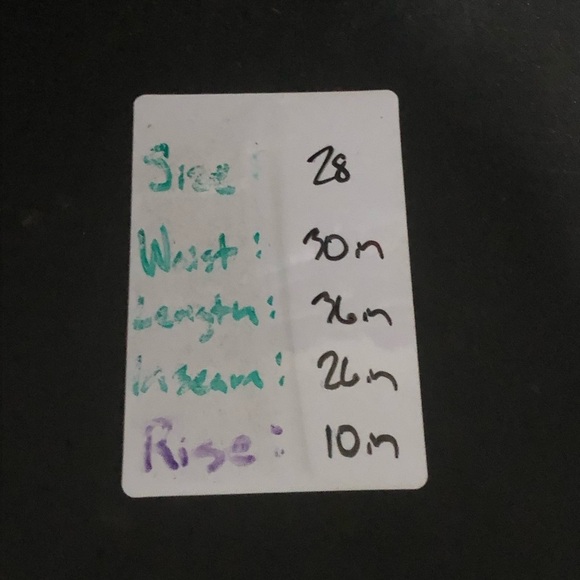 Size: 28
Waist: 30in
Length: 36in
Inseam: 26in
Rise: 10in